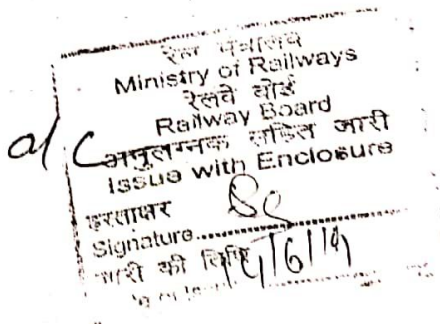 रेल मंत्रालय
Ministry of Railways
रेलवे बोर्ड
Railway Board
अनुलग्नक सहित जारी
Issue with Enclosure
हस्ताक्षर
Signature..............
जारी की तिथि 14/6/19